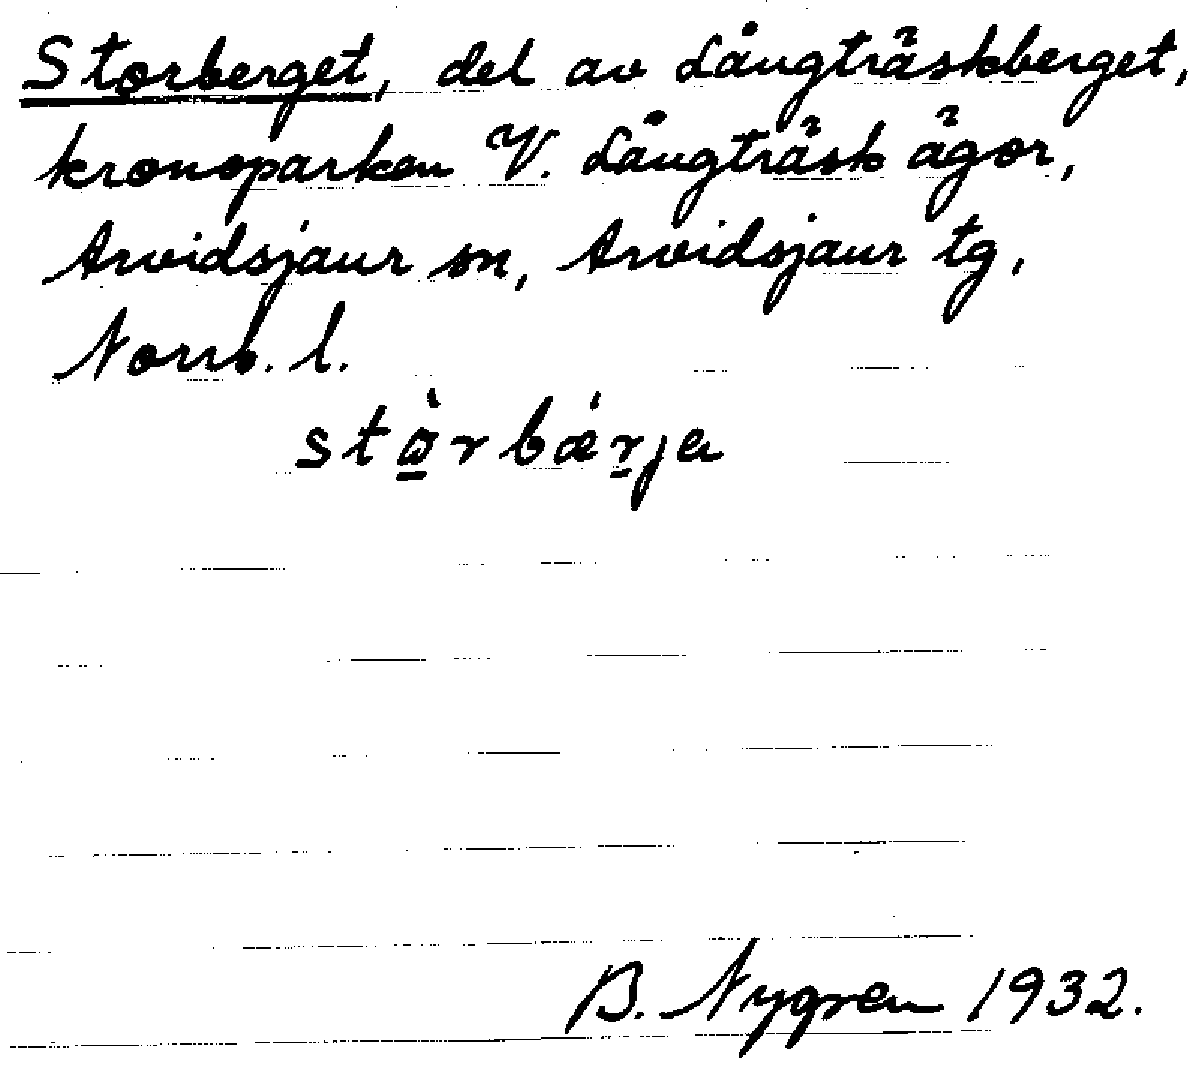 Storberget, del av Långträskberget,
kronoparken V. Långträsk ägor,
Arvidsjaur sn, Arvidsjaur tg,
Norrb. l.
stò̠rbǽr̠ja
B. Nygren 1932.